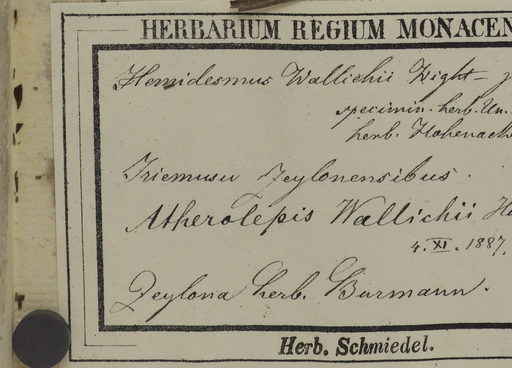 HERBARIUM REGIUM MONACEN
Hemidesmus Wallichii Wight
specimin. herb. Un.
herb. Hohenack
Iriemusu Zeylonensibus.
Atherolepis Wallichii Ho
4. XI. 1887.
Zeylona herb. Burmann.
Herb. Schmiedel.